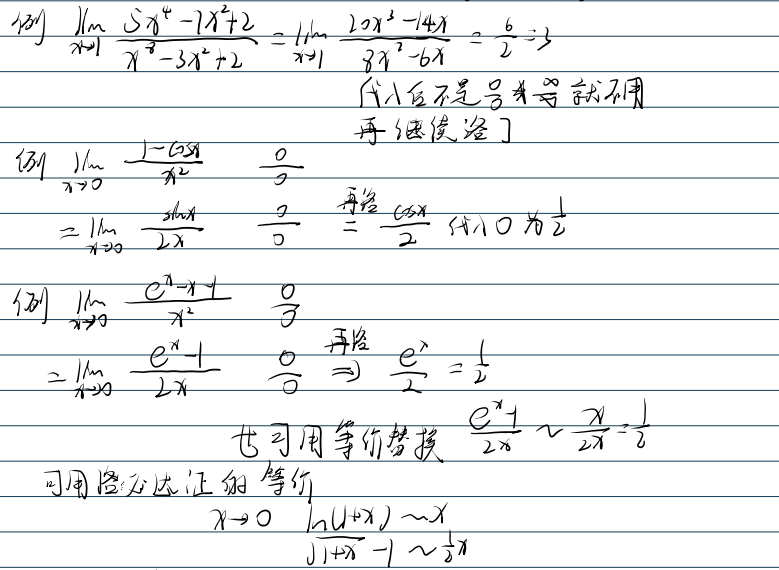 例 lim x→1 (5x⁴-7x²+2)/(x⁸-3x²+2) = lim x→1 (20x³-14x)/(8x⁷-6x) = 6/2 = 3
代入后不是 0/0 或 ∞/∞ 就不用
再继续洛了
例 lim x→0 (1-cosx)/x² 0/0
= lim x→0 sinx/2x 0/0 再洛 = cosx/2 代入0为 1/2
例 lim x→0 (eˣ-x-1)/x² 0/0
= lim x→0 (eˣ-1)/2x 0/0 再洛 ⇒ eˣ/2 = 1/2
也可用等价替换 (eˣ-1)/2x ~ x/2x = 1/2
可用洛必达证的等价
x→0 ln(1+x) ~ x
√(1+x) -1 ~ ½x